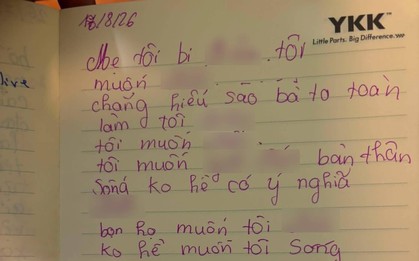 18/8/26
YKK
Little Parts. Big Difference.
Mẹ tôi bị tôi
muốn
chẳng hiểu sao bà ta toàn
làm tôi
tôi muốn
tôi muốn bản thân
sống ko hề có ý nghĩa
bọn họ muốn tôi
ko hề muốn tôi sống